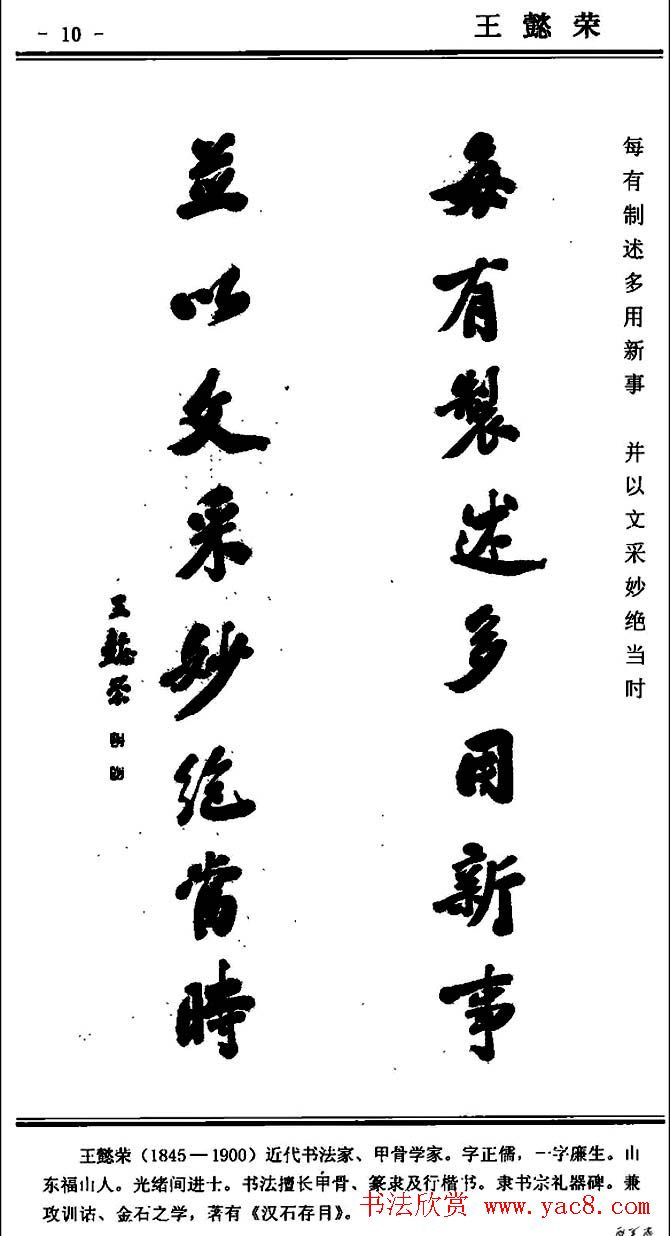 - 10 -
王懿荣
每有制述多用新事 并以文采妙绝当时
每有製述多用新事
並以文采妙絕當時
王懿榮
王懿荣（1845—1900）近代书法家、甲骨学家。字正儒，一字廉生。山
东福山人。光绪间进士。书法擅长甲骨、篆隶及行楷书。隶书宗礼器碑。兼
攻训诂、金石之学，著有《汉石存目》。
书法欣赏 www.yac8.com